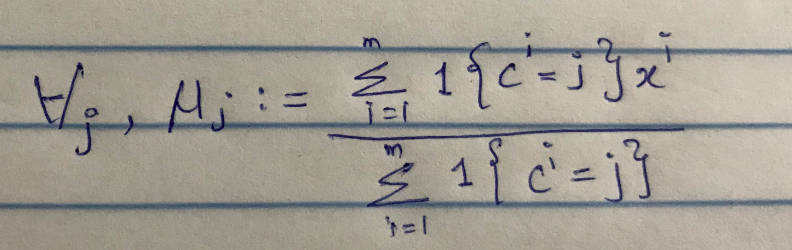 ∀j, μj := \frac{\sum_{i=1}^{m} 1\{c^i = j\} x^i}{\sum_{i=1}^{m} 1\{c^i = j\}}